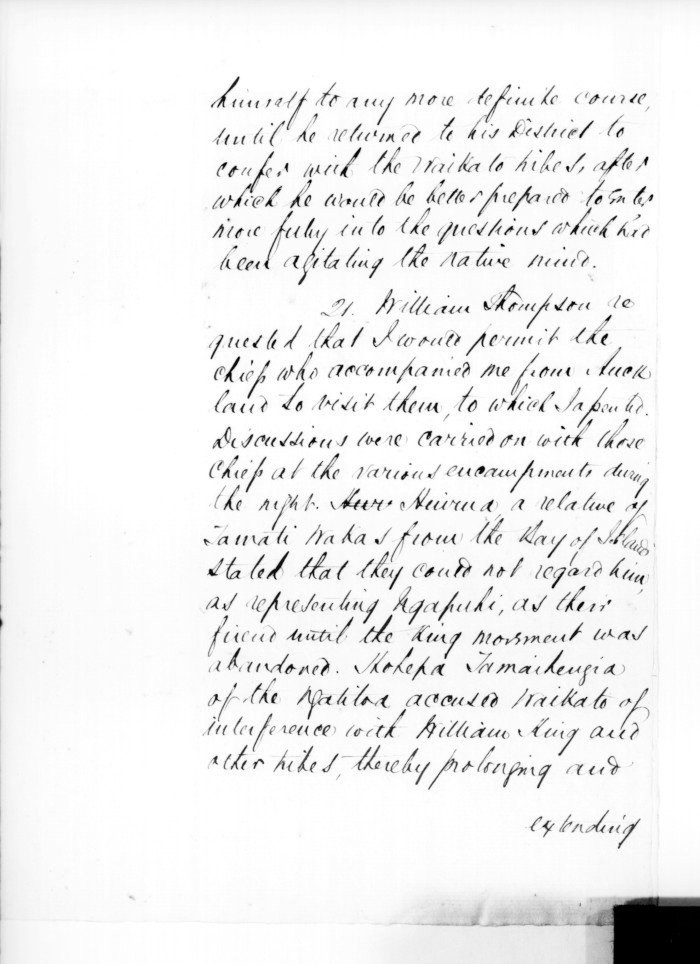 himself to any more definite course,
until he returned to his District to
confer with the Waikato tribes, after
which he would be better prepared to enter
more fully into the questions which had
been agitating the native mind.
21. William Thompson re
quested that I would permit the
chiefs who accompanied me from Auck
land to visit them, to which I assented.
Discussions were carried on with those
chiefs at the various encampments during
the night. a relative of
Tamati Waka's from the Bay of Islands
stated that they could not regard him,
as representing Ngapuhi, as their
friend until the King movement was
abandoned. Hohepa Tamaihengia
of the Ngatitoa accused Waikato of
interference with William King and
other tribes, thereby prolonging and
extending